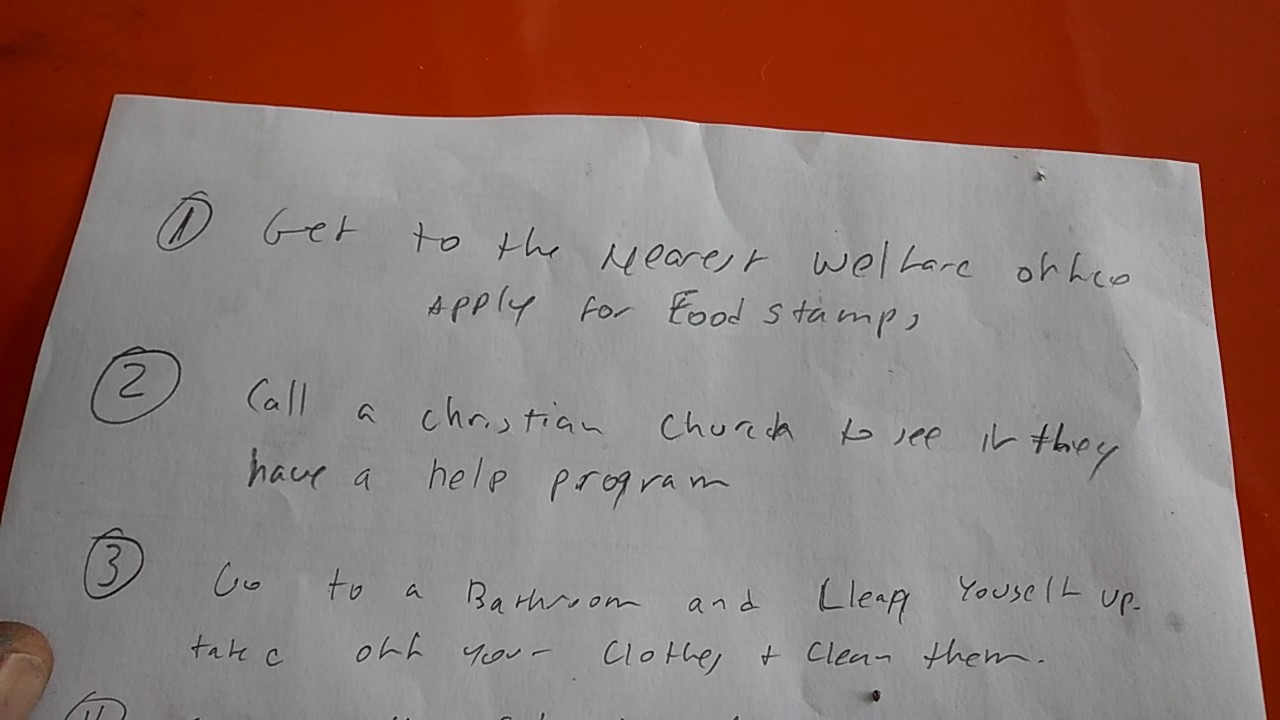 ① Get to the Nearest Welfare office
Apply for Food stamps
② Call a christian church to see if they
have a help program
③ Go to a Bathroom and Clean Youself up.
take off your Clothes + Clean them.
④